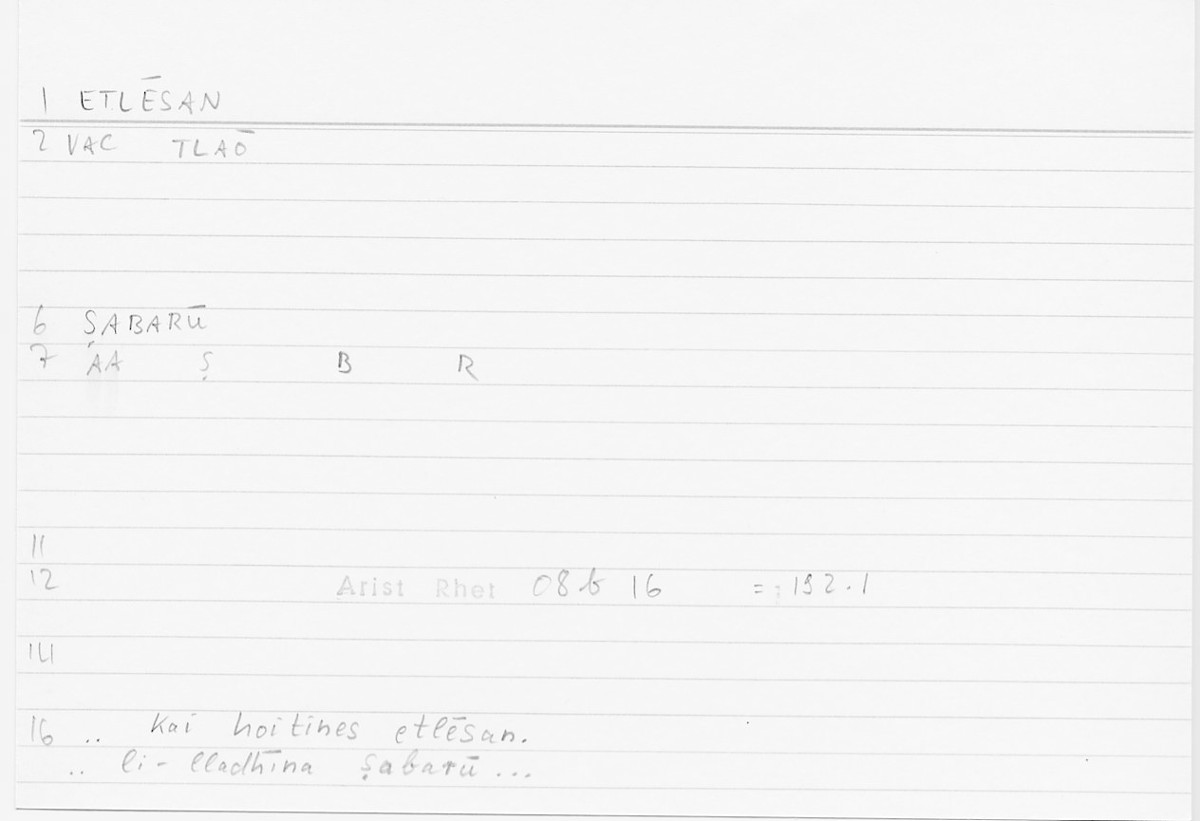 1 ETLĒSAN
2 VAC TLAŌ
6 ṢABARŪ
7 AA Ṣ B R
11
12 Arist Rhet 08b 16 = ; 192.1
14
16 .. kai hoitines etlēsan.
.. li-lladhīna ṣabarū ...